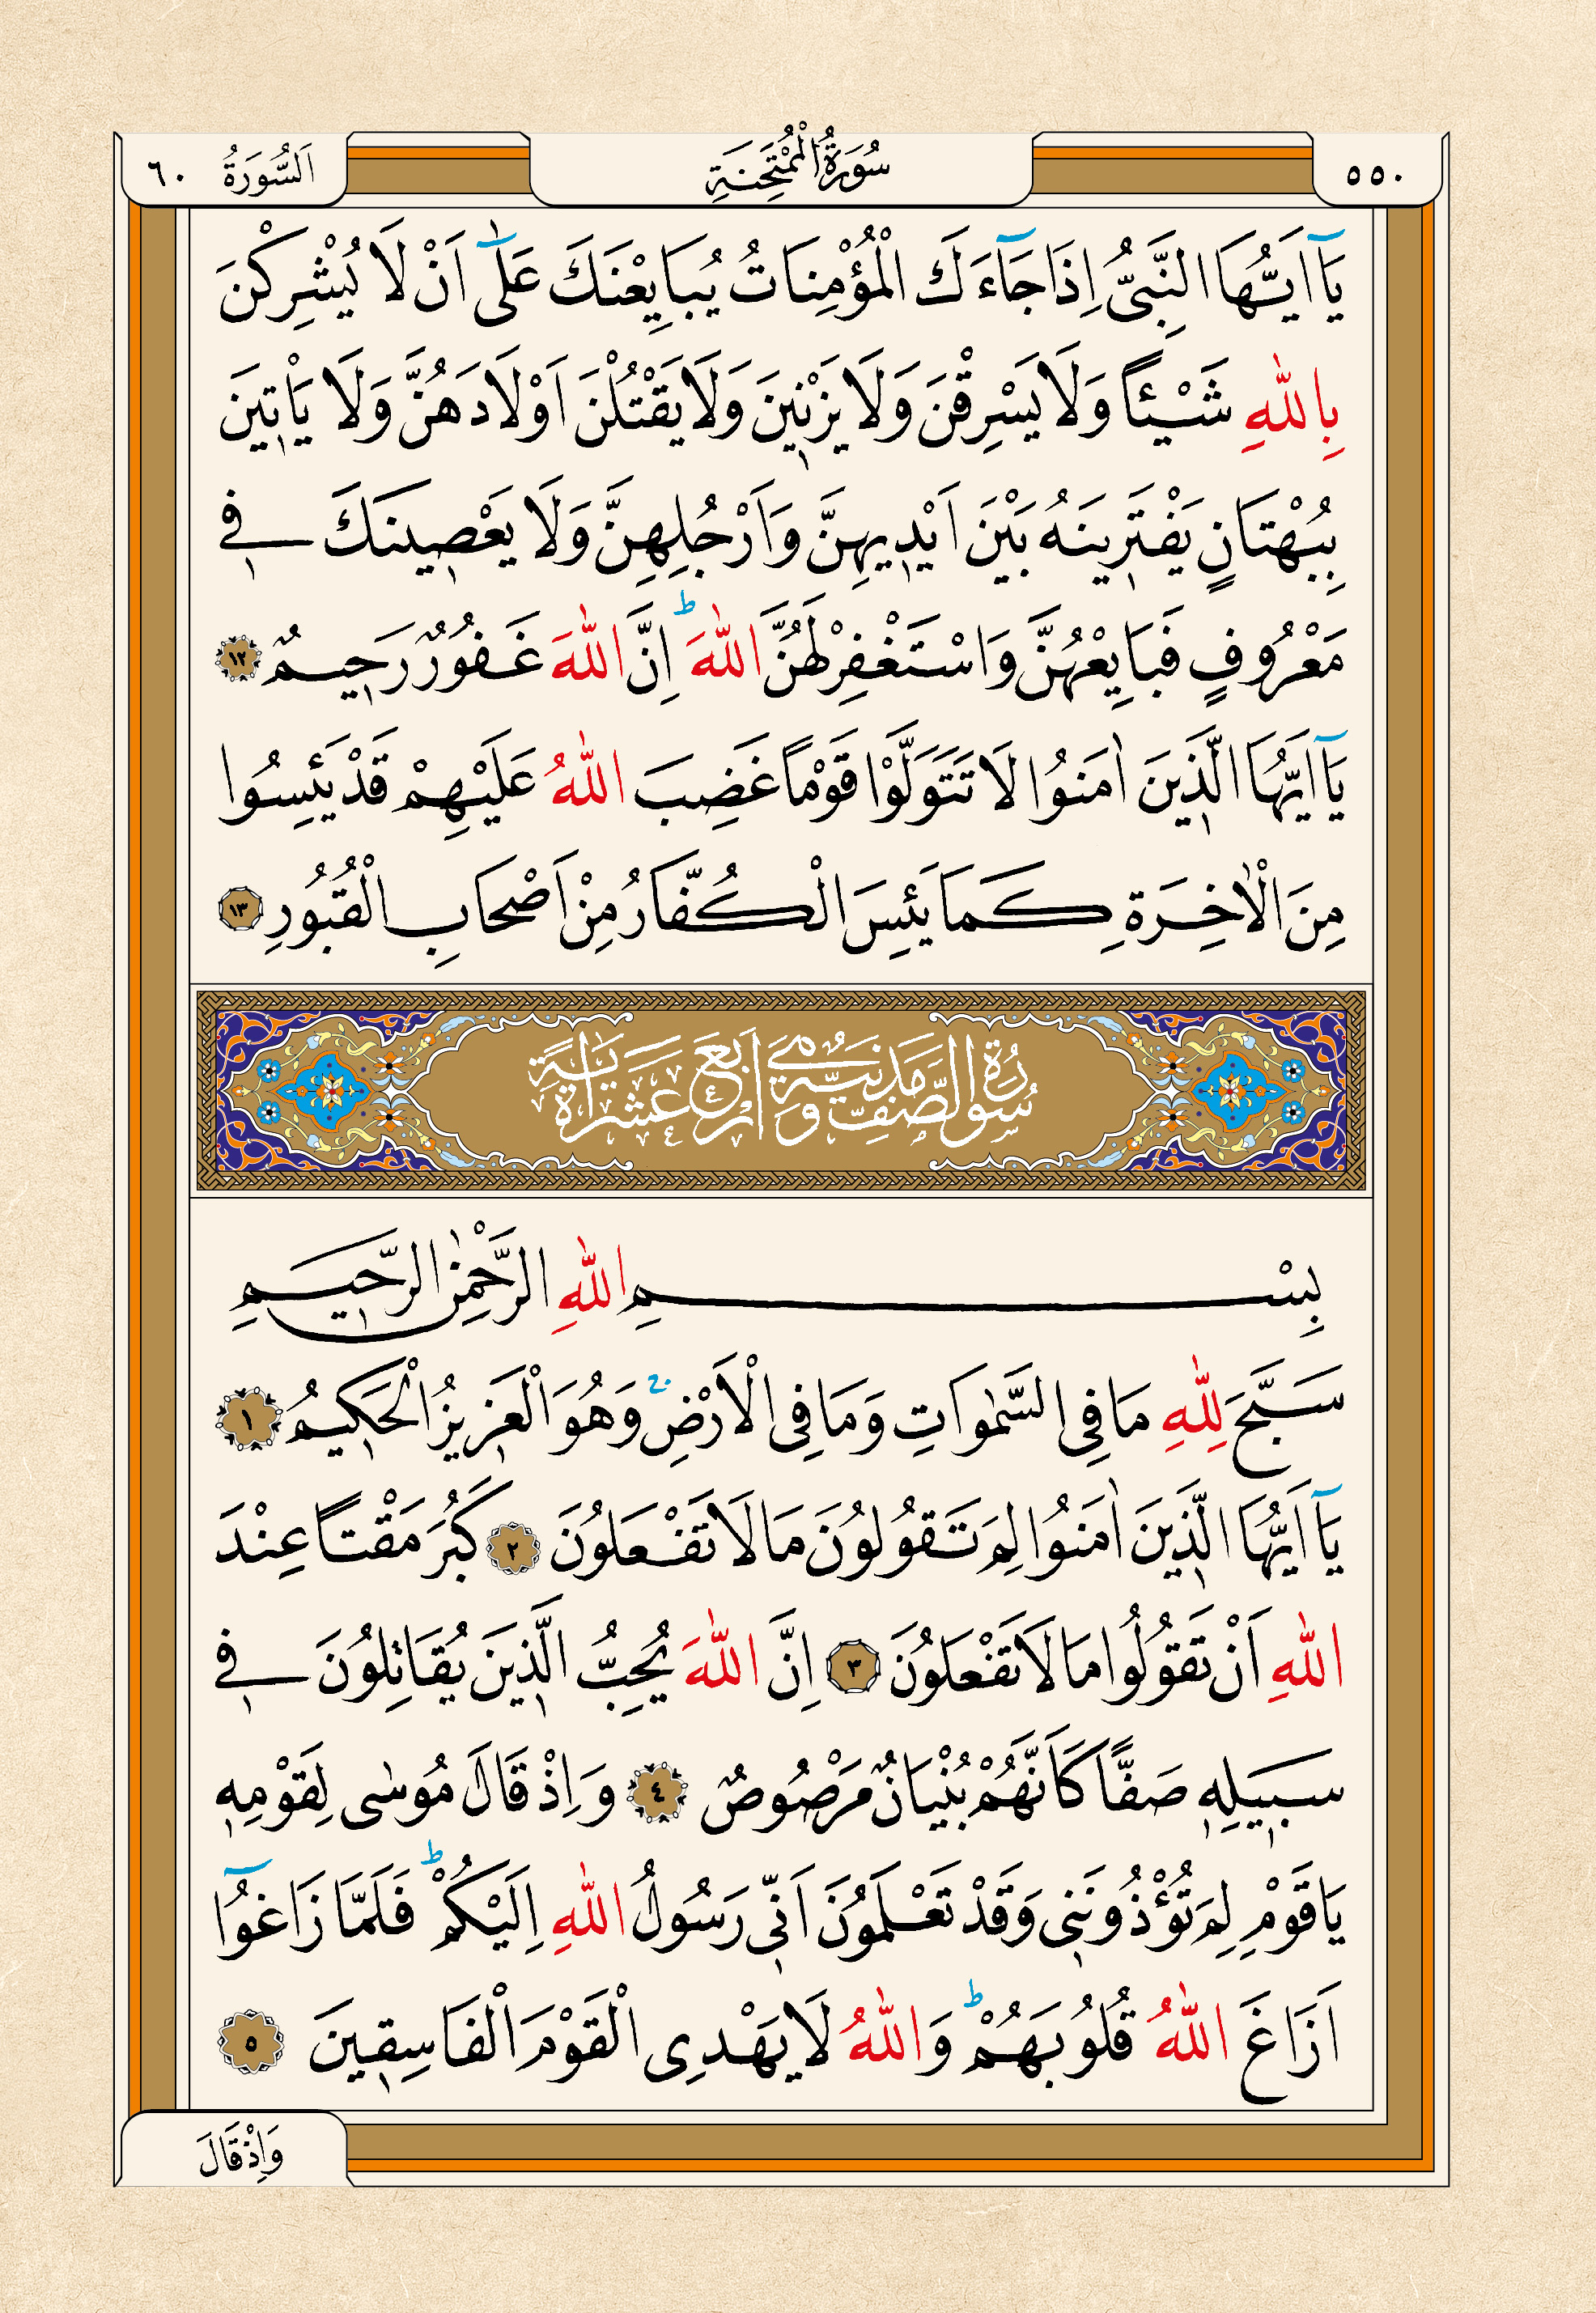 ٥٥٠ سُورَةُ الْمُمْتَحِنَةِ اَلسُّورَةُ ٦٠
يَٓا اَيُّهَا النَّبِىُّ اِذَا جَٓاءَكَ الْمُؤْمِنَاتُ يُبَايِعْنَكَ عَلٰٓى اَنْ لَا يُشْرِكْنَ
بِاللّٰهِ شَيْـًٔا وَلَا يَسْرِقْنَ وَلَا يَزْنٖينَ وَلَا يَقْتُلْنَ اَوْلَادَهُنَّ وَلَا يَاْتٖينَ
بِبُهْتَانٍ يَفْتَرٖينَهُ بَيْنَ اَيْدٖيهِنَّ وَاَرْجُلِهِنَّ وَلَا يَعْصٖينَكَ فٖى
مَعْرُوفٍ فَبَايِعْهُنَّ وَاسْتَغْفِرْ لَهُنَّ اللّٰهَؕ اِنَّ اللّٰهَ غَفُورٌ رَحٖيمٌ ١٢
يَٓا اَيُّهَا الَّذٖينَ اٰمَنُوا لَا تَتَوَلَّوْا قَوْمًا غَضِبَ اللّٰهُ عَلَيْهِمْ قَدْ يَئِسُوا
مِنَ الْاٰخِرَةِ كَمَا يَئِسَ الْكُفَّارُ مِنْ اَصْحَابِ الْقُبُورِ ١٣
سُورَةُ الصَّفِّ مَدَنِيَّةٌ وَهِيَ اَرْبَعَ عَشْرَةَ اٰيَةً
بِسْمِ اللّٰهِ الرَّحْمٰنِ الرَّحٖيمِ
سَبَّحَ لِلّٰهِ مَا فِى السَّمٰوَاتِ وَمَا فِى الْاَرْضِۚ وَهُوَ الْعَزٖيزُ الْحَكٖيمُ ١
يَٓا اَيُّهَا الَّذٖينَ اٰمَنُوا لِمَ تَقُولُونَ مَا لَا تَفْعَلُونَ ٢ كَبُرَ مَقْتًا عِنْدَ
اللّٰهِ اَنْ تَقُولُوا مَا لَا تَفْعَلُونَ ٣ اِنَّ اللّٰهَ يُحِبُّ الَّذٖينَ يُقَاتِلُونَ فٖى
سَبٖيلِهٖ صَفًّا كَاَنَّهُمْ بُنْيَانٌ مَرْصُوصٌ ٤ وَاِذْ قَالَ مُوسٰى لِقَوْمِهٖ
يَا قَوْمِ لِمَ تُؤْذُونَنٖى وَقَدْ تَعْلَمُونَ اَنّٖى رَسُولُ اللّٰهِ اِلَيْكُمْؕ فَلَمَّا زَاغُٓوا
اَزَاغَ اللّٰهُ قُلُوبَهُمْؕ وَاللّٰهُ لَا يَهْدِى الْقَوْمَ الْفَاسِقٖينَ ٥
وَاِذْ قَالَ